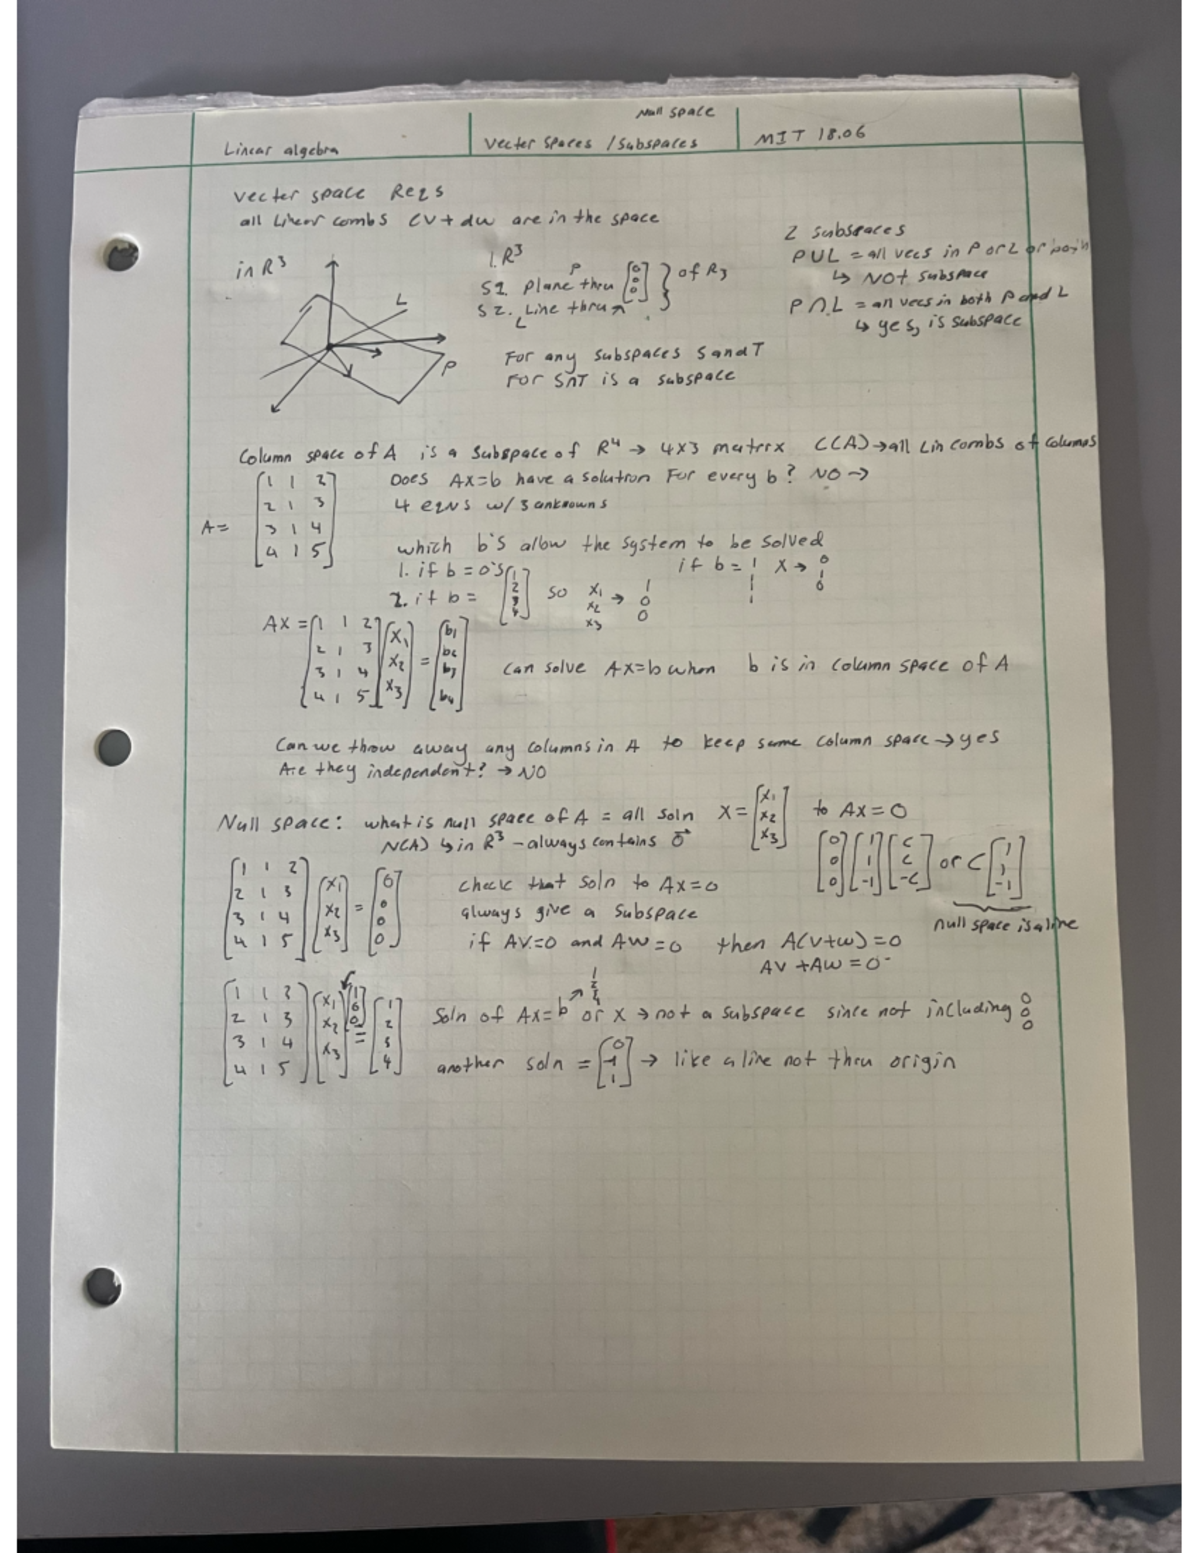 Null space
Linear algebra
Vecter spaces / Subspaces
MIT 18.06
vecter space Reqs
all linear combs cv + dw are in the space
in R³
L
P
1. R³
P
S1. plane thru [0 0 0] } of R3
S2. Line thru
L
For any subspaces S and T
For S∩T is a subspace
2 subspaces
P∪L = all vecs in P or L or both
↳ NOT subspace
P∩L = all vecs in both P and L
↳ yes, is subspace
Column space of A is a subspace of R⁴ → 4x3 matrix C(A) → all Lin combs of columns
A =
[1 1 2
2 1 3
3 1 4
4 1 5]
Does Ax=b have a solution For every b? NO →
4 eqns w/ 3 unknowns
which b's allow the system to be solved
1. if b = 0's
2. if b = [1 2 3 4] so x1 x2 x3 → 1 0 0
if b = 1 1 1 1 x → 0 1 0
AX = [1 1 2
2 1 3
3 1 4
4 1 5] [x1 x2 x3] = [b1 b2 b3 b4]
can solve Ax=b when b is in column space of A
Can we throw away any columns in A to keep same column space → yes
Are they independent? → NO
Null space: what is null space of A = all soln x = [x1 x2 x3] to Ax=0
N(A) ↳ in R³ - always contains 0⃗
[0 0 0] [1 1 -1] [c c -c] or c [1 1 -1]
null space is a line
[1 1 2
2 1 3
3 1 4
4 1 5] [x1 x2 x3] = [0 0 0 0]
check that soln to Ax=0
always give a subspace
if Av=0 and Aw=0 then A(v+w)=0
Av + Aw = 0
[1 1 2
2 1 3
3 1 4
4 1 5] [x1 x2 x3] [1 0 0] = [1 2 3 4]
1 2 3 4
Soln of Ax=b or x → not a subspace since not including 0 0 0
another soln = [0 -1 1] → like a line not thru origin